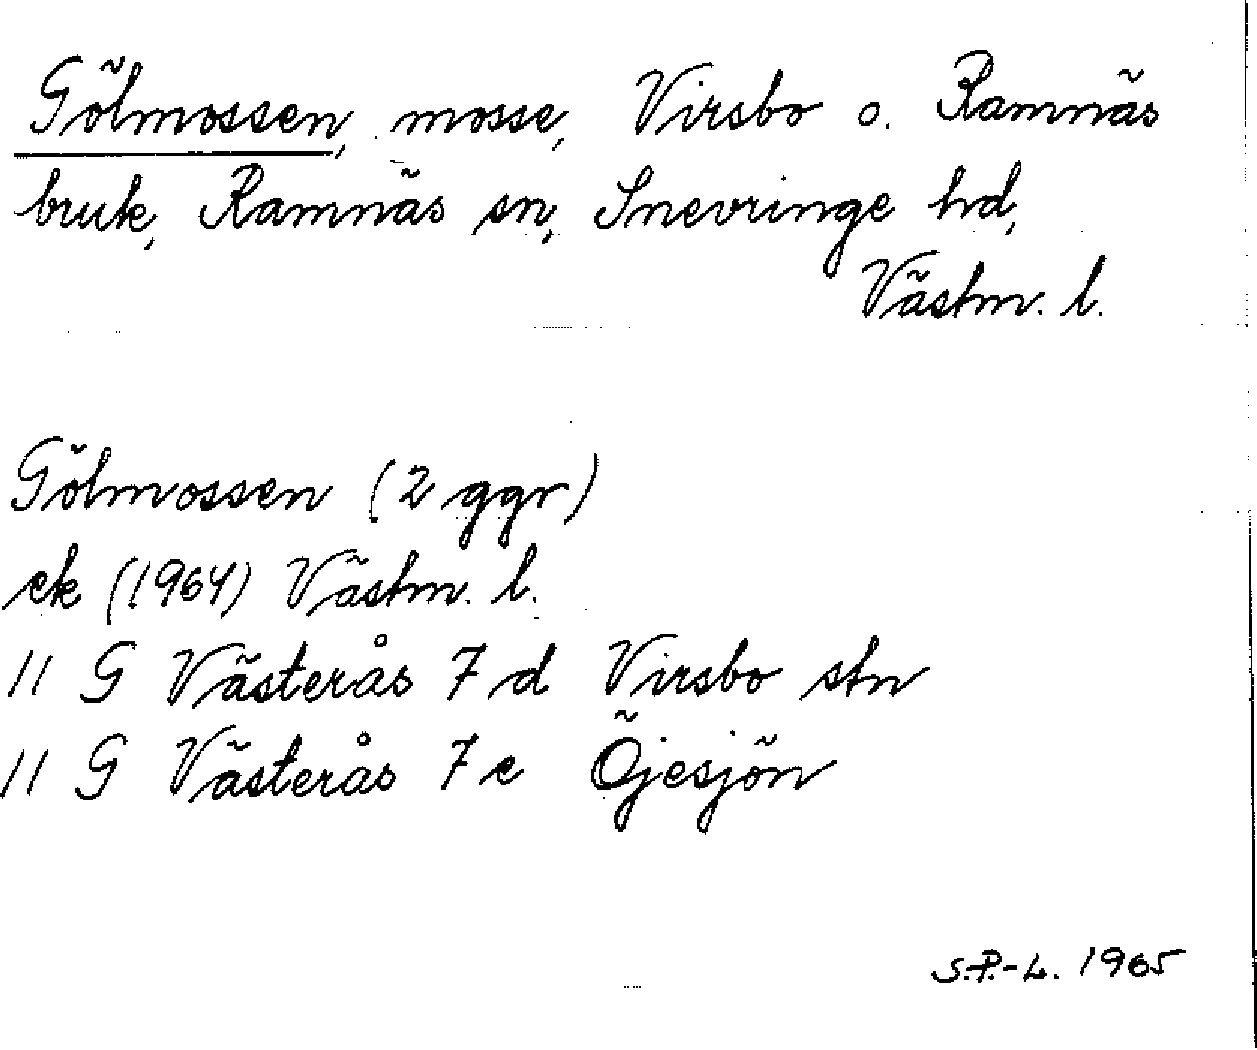 Gölmossen, mosse, Virsbo o. Ramnäs
bruk, Ramnäs sn, Snevringe hd,
Västm. l.
Gölmossen (2 ggr)
ek (1964) Västm. l.
11 G Västerås 7 d Virsbo stn
11 G Västerås 7 e Öjesjön
S.P.-L. 1965